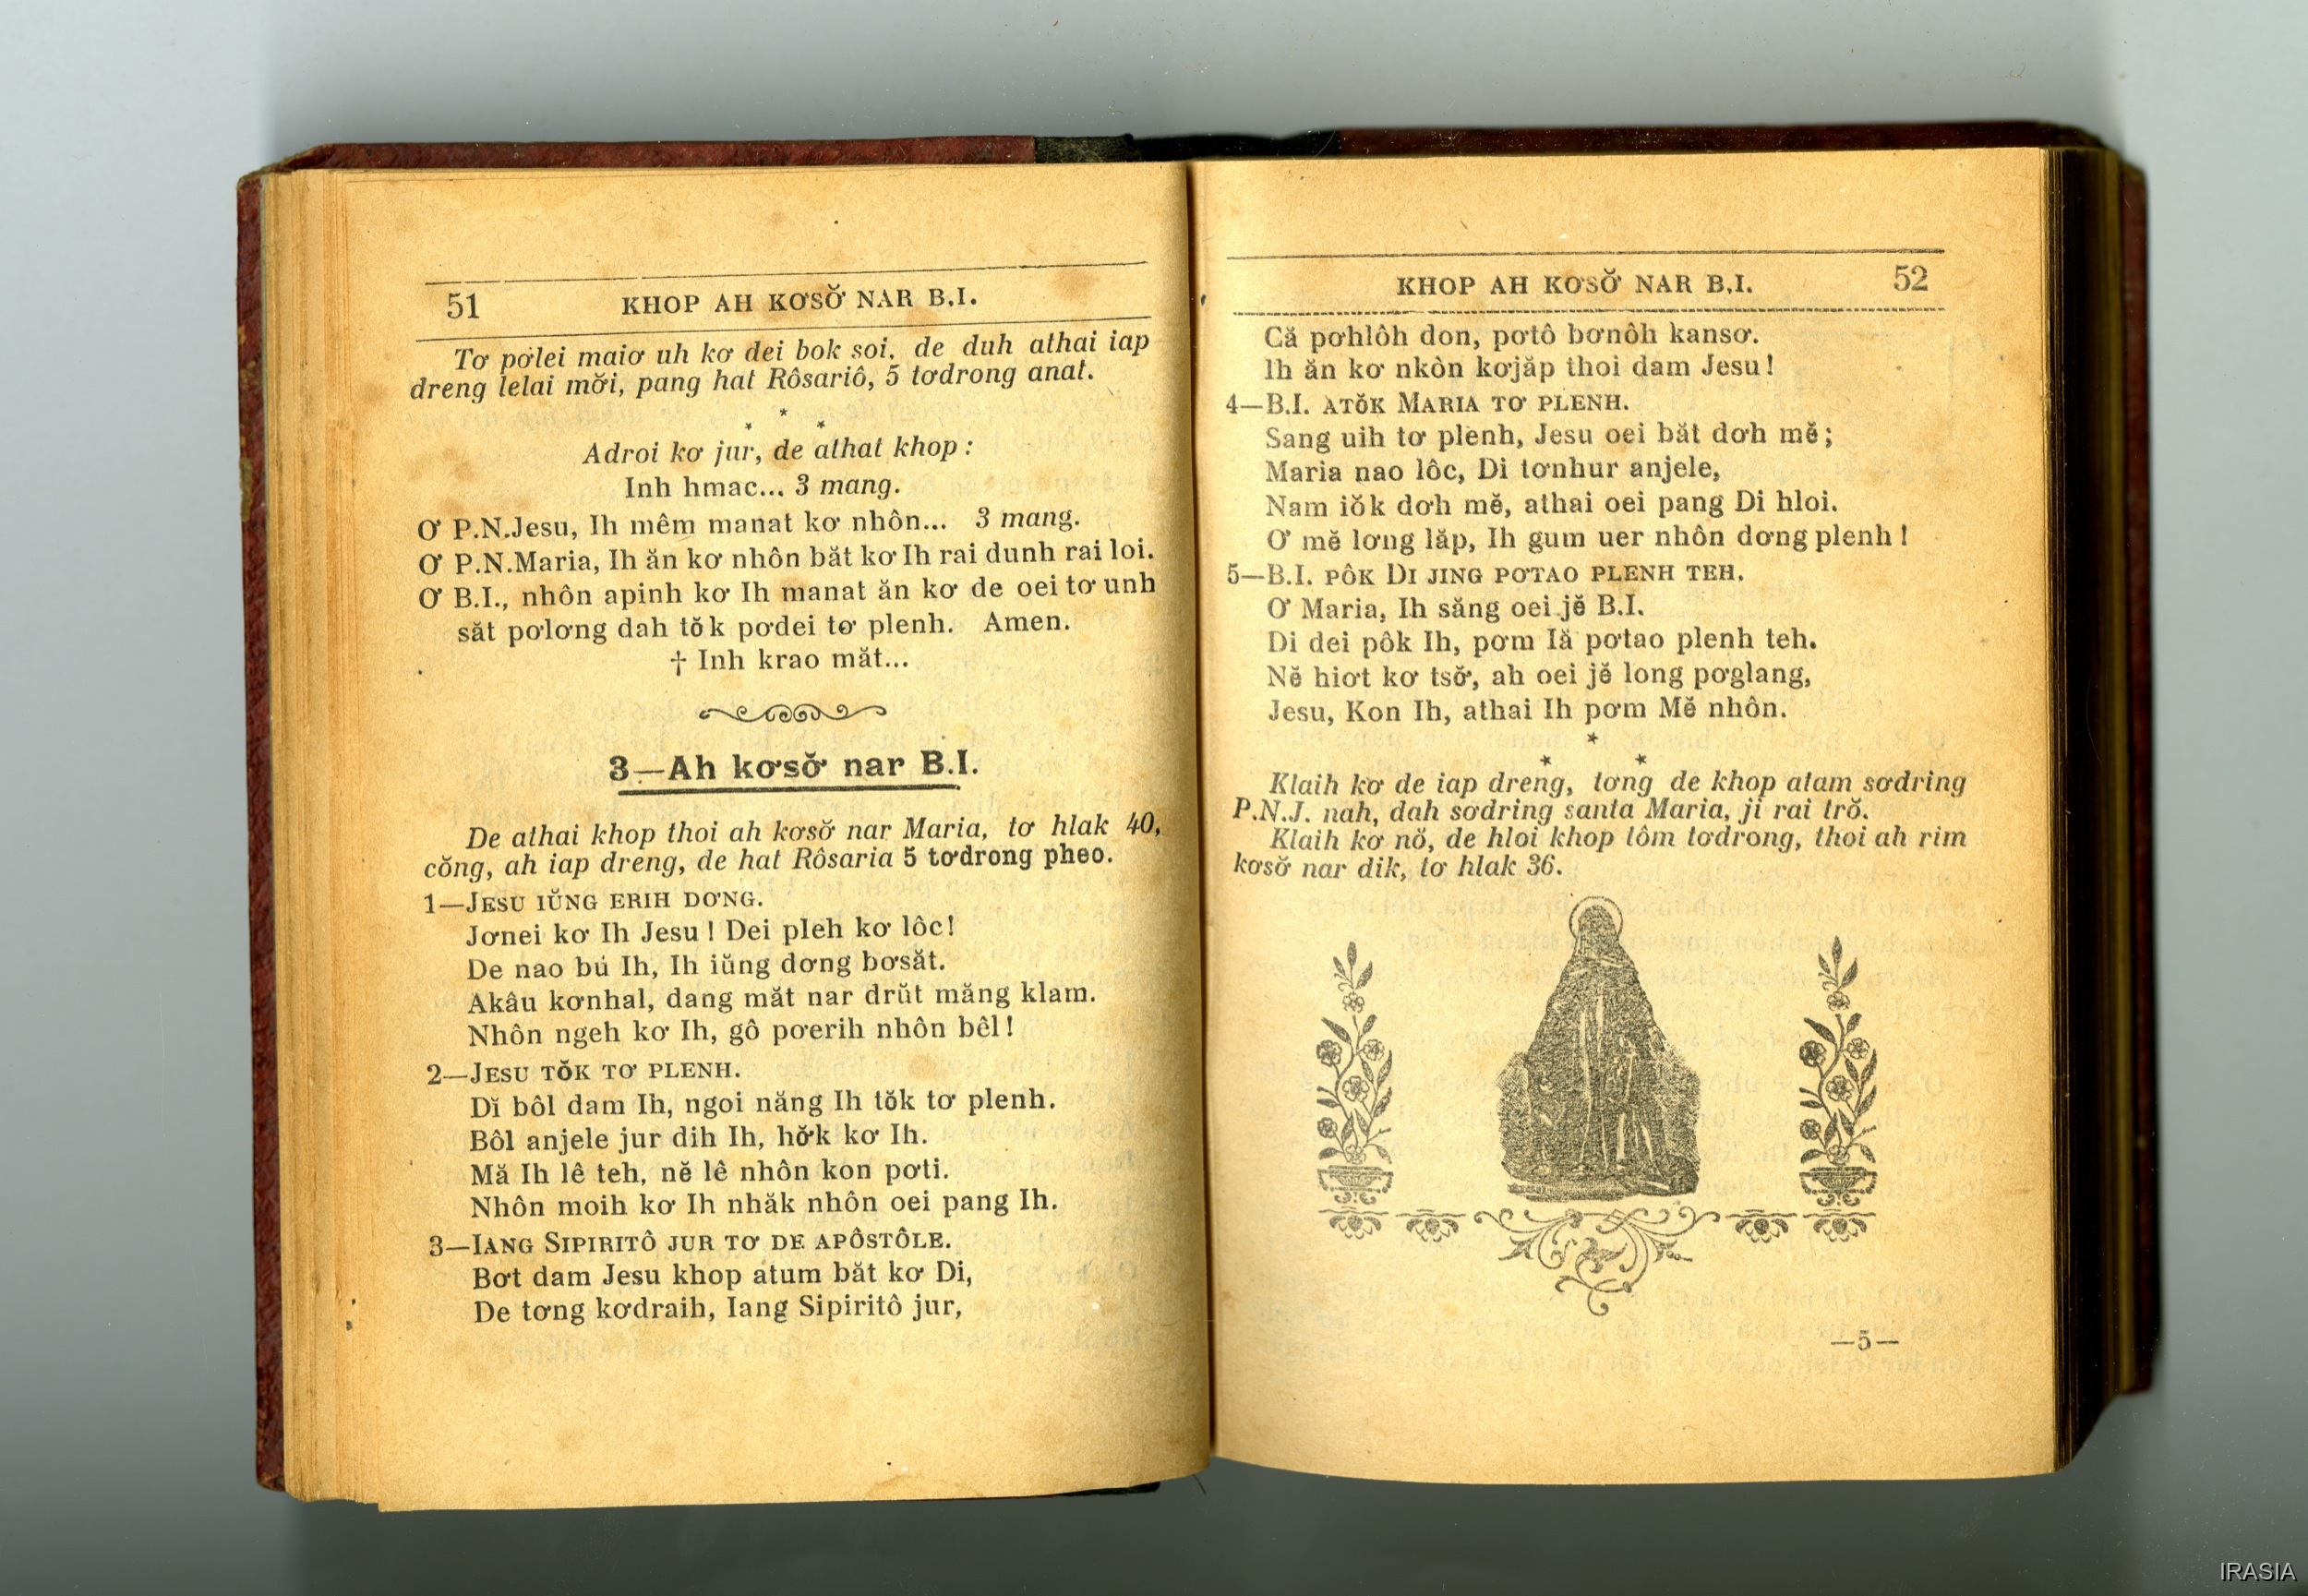 51 KHOP AH KƠSỜ̆ NAR B.I.
Tơ pơlei maiơ uh kơ dei bok soi, de duh athai iap
dreng lelai mơ̆i, pang hat Rôsariô, 5 tơdrong anat.
* * *
Adroi kơ jur, de athat khop :
Inh hmac... 3 mang.
Ơ P.N.Jesu, Ih mêm manat kơ nhôn... 3 mang.
Ơ P.N.Maria, Ih ăn kơ nhôn băt kơ Ih rai dunh rai loi.
Ơ B.I., nhôn apinh kơ Ih manat ăn kơ de oei tơ unh
săt pơlơng dah tŏk pơdei tơ plenh. Amen.
† Inh krao măt...
3—Ah kơsơ̆ nar B.I.
De athai khop thoi ah kơsơ̆ nar Maria, tơ hlak 40,
cŏng, ah iap dreng, de hat Rôsaria 5 tơdrong pheo.
1—JESU IŬNG ERIH DƠNG.
Jơnei kơ Ih Jesu ! Dei pleh kơ lôc !
De nao bú Ih, Ih iŭng dơng bơsăt.
Akâu kơnhal, dang măt nar drŭt măng klam.
Nhôn ngeh kơ Ih, gô pơerih nhôn bêl !
2—JESU TŎK TƠ PLENH.
Dĭ bôl dam Ih, ngoi năng Ih tŏk tơ plenh.
Bôl anjele jur dih Ih, hơ̆k kơ Ih.
Mă Ih lê teh, nĕ lê nhôn kon pơti.
Nhôn moih kơ Ih nhăk nhôn oei pang Ih.
3—IANG SIPIRITÔ JUR TƠ DE APÔSTÔLE.
Bơt dam Jesu khop atum băt kơ Di,
De tơng kơdraih, Iang Sipiritô jur,
KHOP AH KƠSƠ̆ NAR B.I. 52
Că pơhlôh don, pơtô bơnôh kansơ.
Ih ăn kơ nkòn kơjăp thoi dam Jesu !
4—B.I. ATŎK MARIA TƠ PLENH.
Sang uih tơ plenh, Jesu oei băt dơh mĕ ;
Maria nao lôc, Di tơnhur anjele,
Nam iŏk dơh mĕ, athai oei pang Di hloi.
Ơ mĕ lơng lăp, Ih gum uer nhôn dơng plenh !
5—B.I. PÔK DI JING PƠTAO PLENH TEH.
Ơ Maria, Ih săng oei jĕ B.I.
Di dei pôk Ih, pơm Iă pơtao plenh teh.
Nĕ hiơt kơ tsơ̆, ah oei jĕ long pơglang,
Jesu, Kon Ih, athai Ih pơm Mĕ nhôn.
* * *
Klaih kơ de iap dreng, tơng de khop atam sơdring
P.N.J. nah, dah sơdring santa Maria, ji rai trŏ.
Klaih kơ nŏ, de hloi khop tôm tơdrong, thoi ah rim
kơsơ̆ nar dik, tơ hlak 36.
—5—
IRASIA